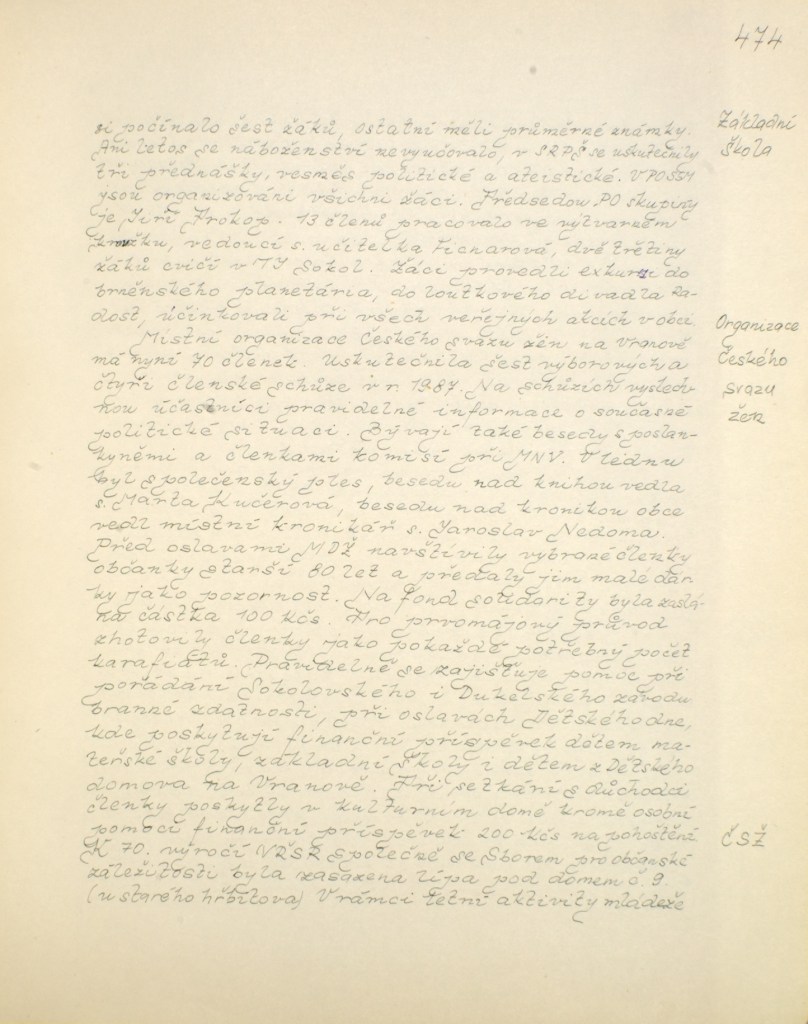 474
Základní
škola
si počínalo šest žáků, ostatní měli průměrné známky.
Ani letos se náboženství nevyučovalo, v SRPŠ se uskutečnily
tři přednášky, vesměs politické a ateistické. V PO SSM
jsou organizováni všichni žáci. Předsedou PO skupiny
je Jiří Prokop. 13 členů pracovalo ve výtvarném
kroužku, vedoucí s. učitelka Ficnarová, dvě třetiny
žáků cvičí v TJ Sokol. Žáci provedli exkurzi do
brněnského planetária, do loutkového divadla Ra-
dost, účinkovali při všech veřejných akcích v obci.
Organizace
Českého
svazu
žen
Místní organizace Českého svazu žen na Vranově
má nyní 70 členek. Uskutečnila šest výborových a
čtyři členské schůze v r. 1987. Na schůzích vyslech-
nou účastníci pravidelné informace o současné
politické situaci. Bývají také besedy s poslan-
kyněmi a členkami komisí při MNV. V lednu
byl společenský ples, besedu nad knihou vedla
s. Marta Kučerová, besedu nad kronikou obce
vedl místní kronikář s. Jaroslav Nedoma.
Před oslavami MDŽ navštívily vybrané členky
občanky starší 80 let a předaly jim malé dár-
ky jako pozornost. Na fond solidarity byla zaslá-
na částka 100 Kčs. Pro prvomájový průvod
zhotovily členky jako pokaždé potřebný počet
karafiátů. Pravidelně se zajišťuje pomoc při
pořádání Sokolovského i Dukelského závodu
branné zdatnosti, při oslavách Dětského dne,
kde poskytují finanční příspěvek dětem ma-
teřské školy, základní školy i dětem z Dětského
domova na Vranově. Při setkání s důchodci
členky poskytly v kulturním domě kromě osobní
pomoci finanční příspěvek 200 Kčs na pohoštění.
ČSŽ
K 70. výročí VŘSR společně se Sborem pro občanské
záležitosti byla zasazena lípa pod domem č. 9.
(u starého hřbitova) V rámci letní aktivity mládeže